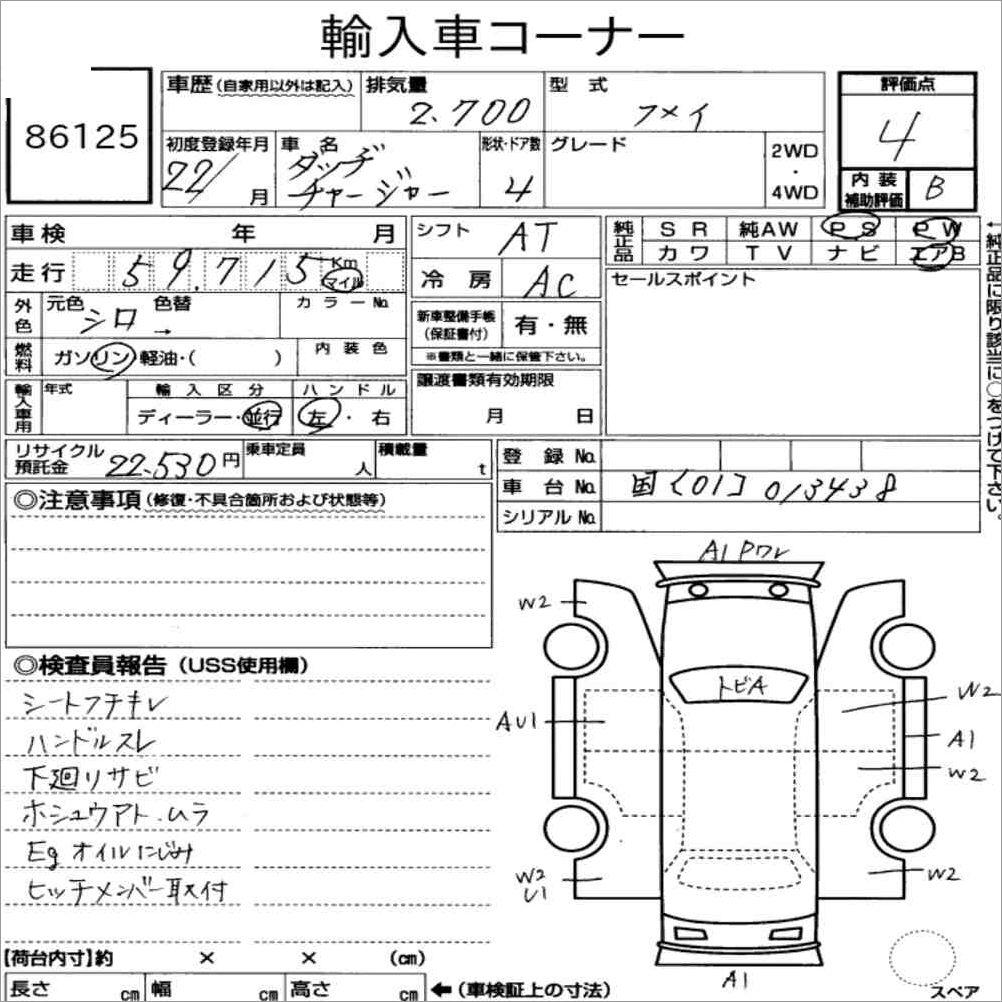 輸入車コーナー
86125
車歴(自家用以外は記入) 排気量 2.700 型式 フメイ
評価点 4
内装補助評価 B
初度登録年月 22/ 月 車名 ダッヂ チャージャー 形状・ドア数 4 グレード 2WD・4WD
車検 年 月
走行 59,715 Km マイル
外色 元色 シロ 色替 → カラーNo.
燃料 ガソリン・軽油・( ) 内装色
輸入車用 年式 輸入区分 ディーラー・並行 ハンドル 左・右
シフト AT
冷房 AC
新車整備手帳(保証書付) 有・無
※書類と一緒に保管下さい。
譲渡書類有効期限
月 日
純正品 SR 純AW PS PW
カワ TV ナビ エアB
セールスポイント
←純正品に限り該当に○をつけて下さい。
リサイクル預託金 22.530円 乗車定員 人 積載量 t
登録No.
車台No. 国[01]013438
シリアルNo.
◎注意事項(修復・不具合箇所および状態等)
◎検査員報告(USS使用欄)
シートフチキレ
ハンドルスレ
下廻りサビ
ホシュウアト.ムラ
Eg オイルにじみ
ヒッチメンバー取付
A1 Pワレ
W2
トビA
AU1
W2
A1
W2
W2
U1
W2
A1
スペア
【荷台内寸】約 × × (cm)
長さ cm 幅 cm 高さ cm ←(車検証上の寸法)